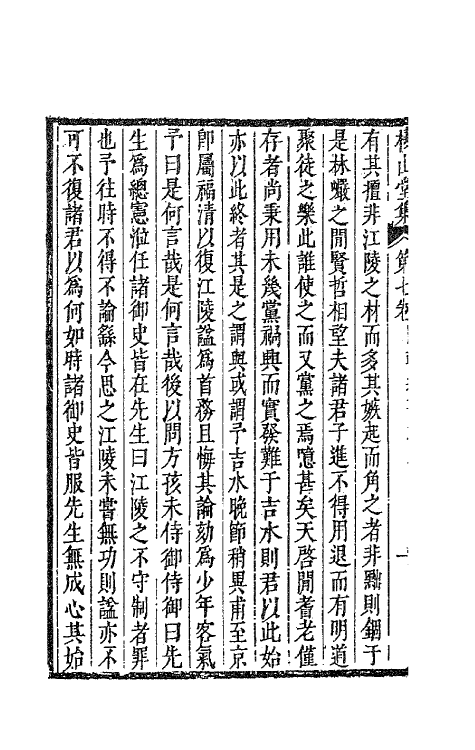 樓山堂集 第七卷
有其擅非江陵之材而多其嫉起而角之者非黜則錮于
是林巘之閒賢哲相望夫諸君子進不得用退而有明道
聚徒之樂此誰使之而又黨之焉噫甚矣天啓閒耆老僅
存者尚秉用未幾黨禍興而實發難于吉水則君以此始
亦以此終者其是之謂與或謂予吉水晚節稍異甫至京
卽屬福清以復江陵諡爲首務且悔其論劾爲少年客氣
予曰是何言哉是何言哉後以問方孩未侍御侍御曰先
生爲總憲涖任諸御史皆在先生曰江陵之不守制者罪
也予往時不得不論繇今思之江陵未嘗無功則諡亦不
可不復諸君以爲何如時諸御史皆服先生無成心其始